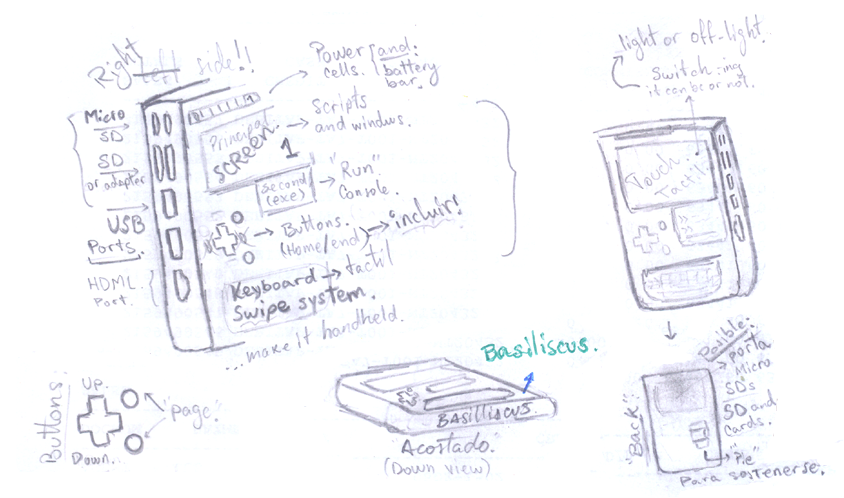 Right left side!!
Power
cells.
and:
battery
bar.
Micro
SD
SD
or adapter
USB
Ports.
HDMI.
Port.
Principal
SCREEN
1
Scripts
and windws.
Second
(exe)
"Run"
Console.
Buttons.
(Home/end)
incluir!
Keyboard
Swipe system.
tactil
...make it handheld.
light or off-light.
Switch :ing
it can be or not.
Touch
Tactil
Buttons:
Up.
Down...
"page".
Basiliscus.
BASILLISCUS
Acostado.
(Down view)
"Back"
Posible:
porta
Micro
SD's
SD and
cards.
"Pie"
Para sostenerse.